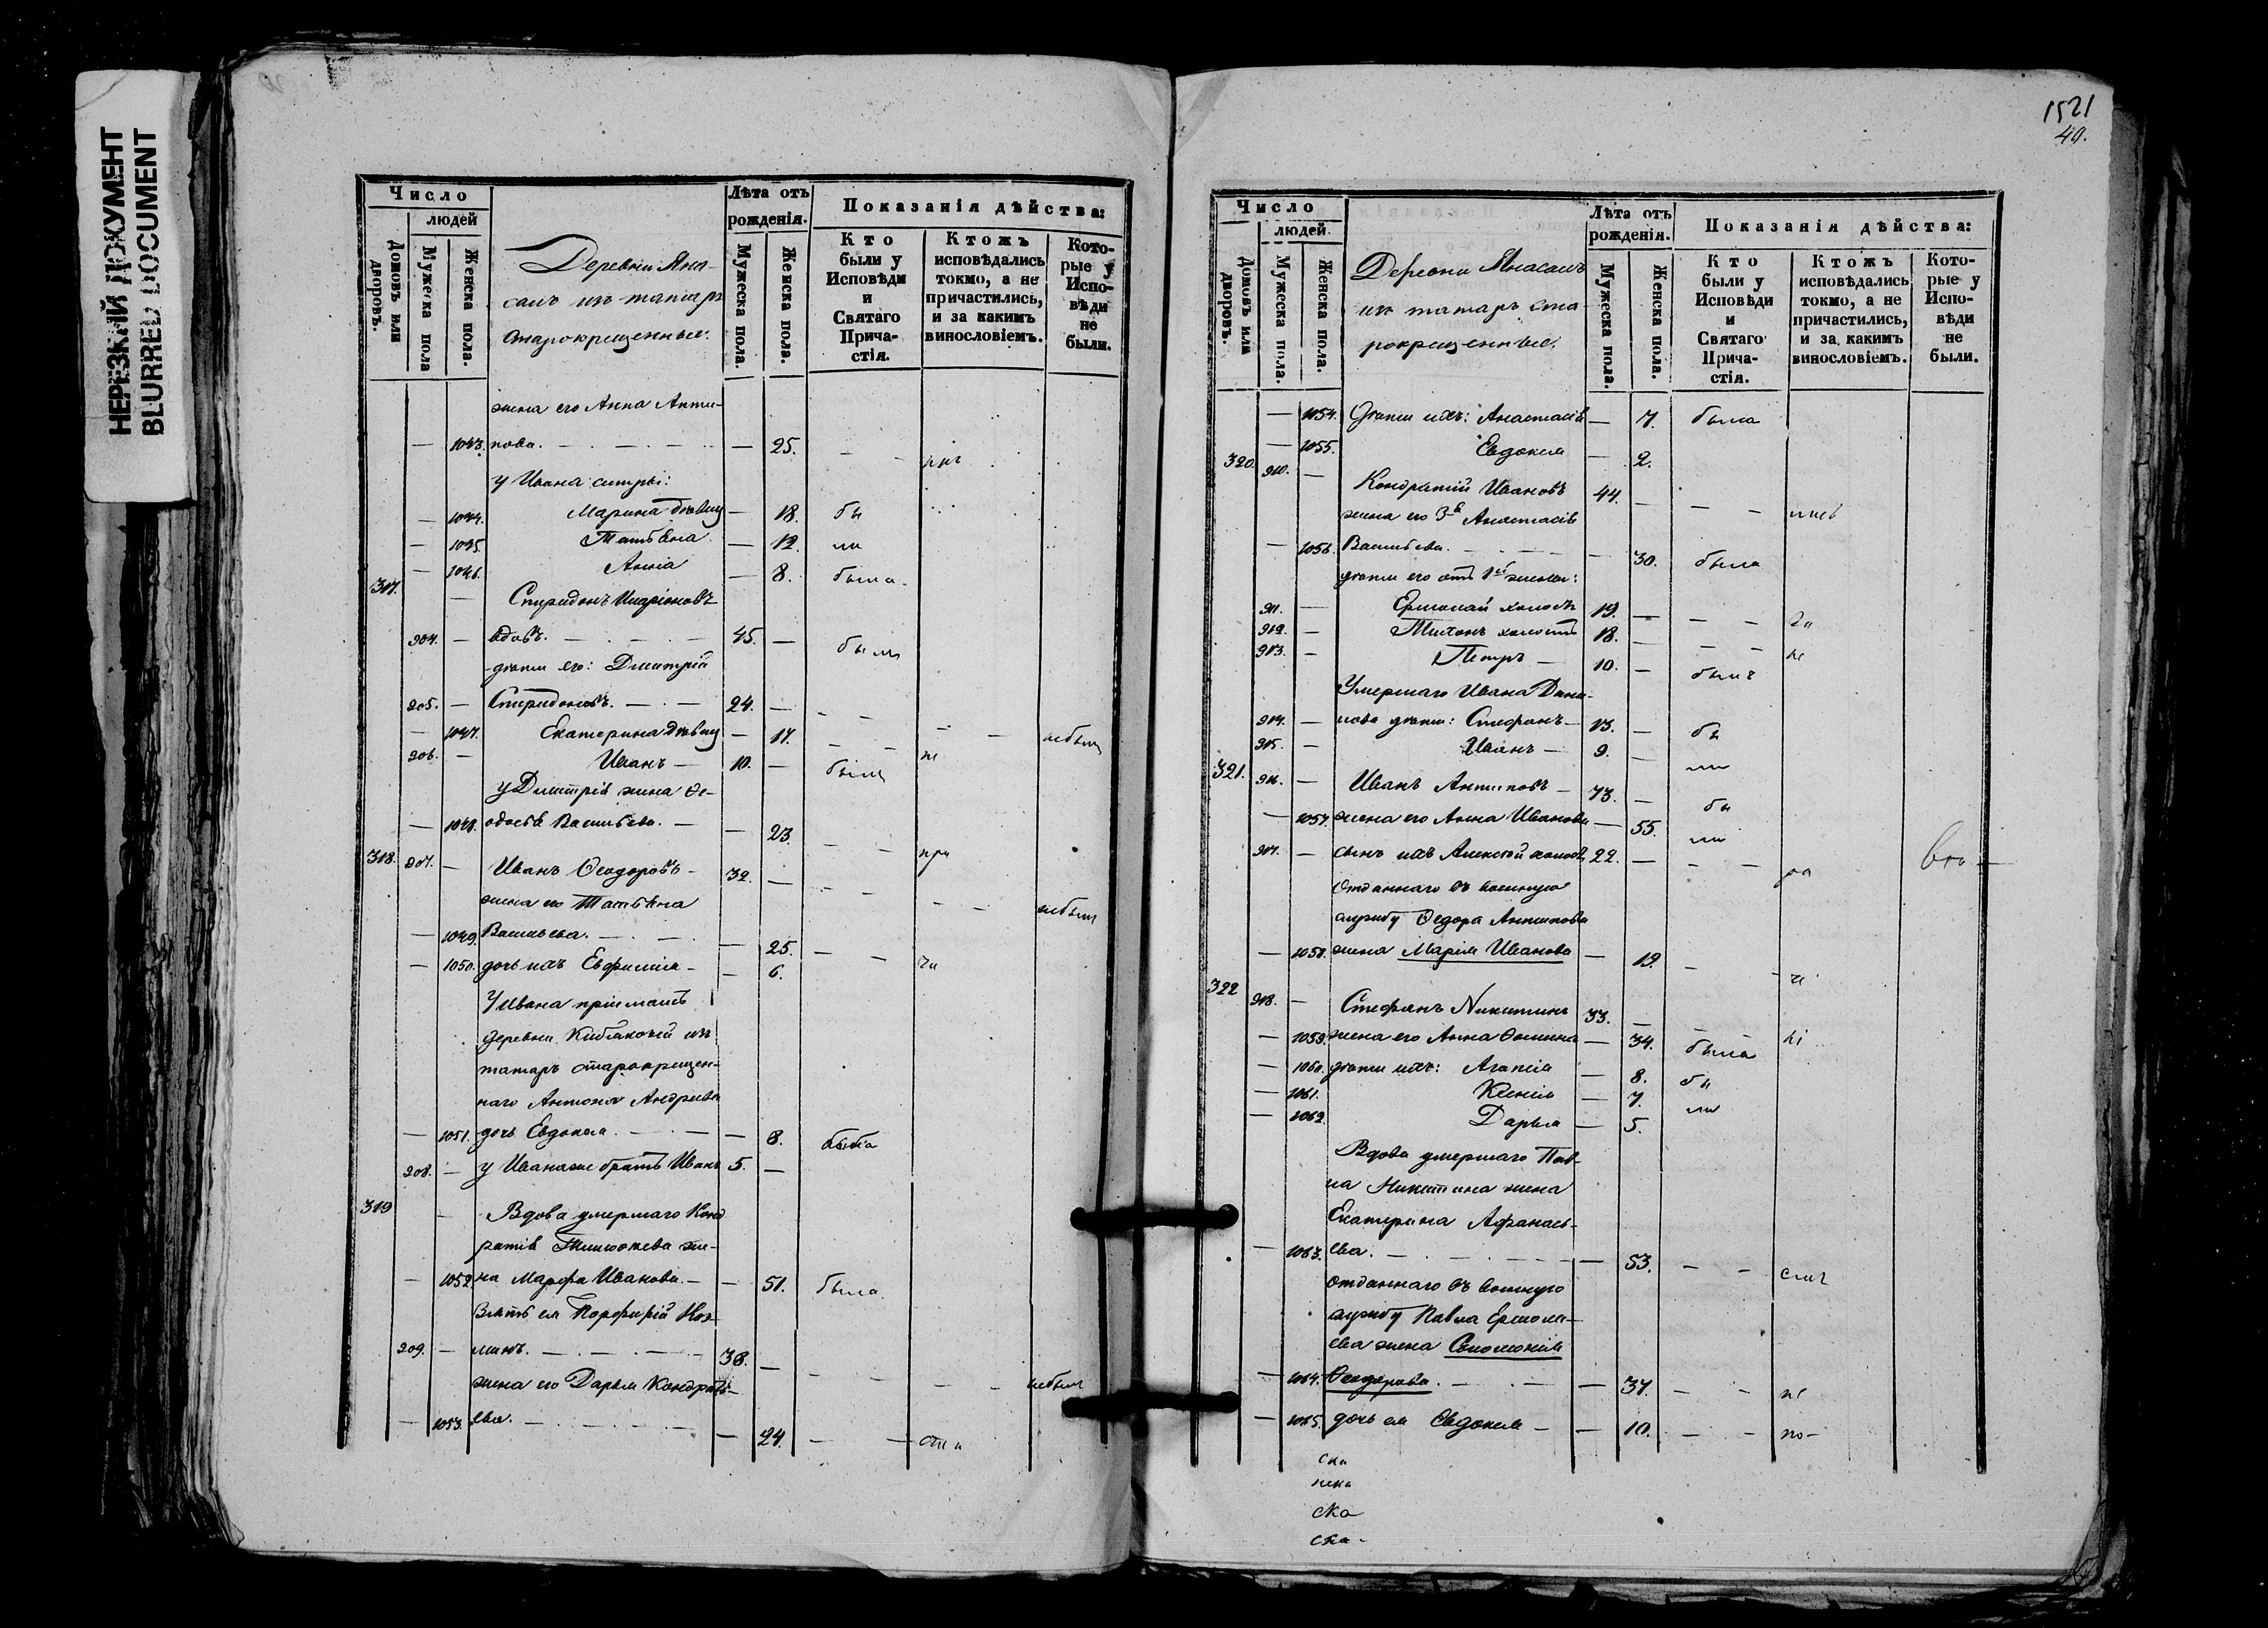 НЕРЕЗКИЙ ДОКУМЕНТ
BLURRED DOCUMENT
Число
людей
Домовъ или дворовъ.
Мужеска пола
Женска пола.
Деревни Яна-
салъ изъ татаръ
старокрещенные.
Лѣта отъ рожденія.
Мужеска пола.
Женска пола.
Показанія дѣйства:
Кто были у Исповѣди и Святаго Прича-стія.
Ктожъ исповѣдались токмо, а не причастились, и за какимъ винословіемъ.
Кото-рые у Испо-вѣди не были.
жена его Анна Анти-
— 1043. пова. — 25.
у Ивана сестры:
— 1044. Марина дѣвица — 18. бы
— 1045. Татьяна — 12. ли
— 1046. Анна — 8. была.
317. Спиридонъ Иларіоновъ
904. — вдовъ. 45. — были
дѣти его: Дмитрій
905. — Спиридоновъ. 24. —
— 1047. Екатерина дѣвица — 17. небыли
906. — Иванъ — 10. — были не
у Дмитрія жена Ѳе-
— 1048. одосья Васильева. — 23. при
318. 907. — Иванъ Ѳеодоровъ — 32. —
жена его Татьяна небыли
— 1049. Васильева. — 25.
— 1050. дочь ихъ Евфимія — 6. ча
У Ивана пріиматъ
деревни изъ
татаръ старокрещен-
наго Антона Андреева
— 1051. дочь Евдокія. — 8. была
908. — у Иванаже братъ Иванъ 5. —
319 Вдова умершаго Конд
ратія же-
— 1052 на Марфа Иванова. — 51. была.
Зять ея Порфирій Коз-
909. — минъ. 38. —
жена его Дарья Кондрать- небыли
— 1053. ева. — 24. сти
1521
49.
Число
людей.
Домовъ или дворовъ.
Мужеска пола.
Женска пола.
Деревни Янасалъ
изъ татаръ ста-
рокрещенные.
Лѣта отъ рожденія.
Мужеска пола.
Женска пола.
Показанія дѣйства:
Кто были у Исповѣди и Святаго Прича-стія.
Ктожъ исповѣдались токмо, а не причастились, и за какимъ винословіемъ.
Кото-рые у Испо-вѣди не были.
— 1054. Дѣти ихъ: Анастасія — 7. была
— 1055. Евдокія — 2.
320. 910. — Кондратій Ивановъ 44. —
жена его 3я Анастасія
— 1056. Васильева. — 30. была
дѣти его отъ 1ой жены:
911. — Ермолай холостъ 19. —
912. — Тихонъ холостъ 18. — не
913. — Петръ — 10. — былъ
Умершаго Ивана Дани-
914. — лова дѣти: Стефанъ — 13. — бы
915. — Иванъ — 9. — ли
321. 916. — Иванъ Антиповъ — 73. — бы
— 1057. жена его Анна Иванова — 55. ли
917. — сынъ ихъ Алексѣй холостъ 22. —
Отданнаго въ военную
службу Ѳедора Антипова
— 1058. жена Марія Иванова — 19.
322 918. — Стефанъ Никитинъ 33. —
— 1059. жена его Анна Ѳомина — 34. была
— 1060. дѣти ихъ: Агапія — 8. бы
— 1061. Ксенія — 7. ли
— 1062. Дарья — 5.
Вдова умершаго Пав-
ла Никитина жена
Екатерина Афанась-
— 1063. ева. — 53.
Отданнаго въ военную
службу Павла Ермола-
ева жена Соломонія
— 1064. Ѳеодорова. — 37. не
— 1065. дочь ея Евдокія — 10. по-
ска
ска-